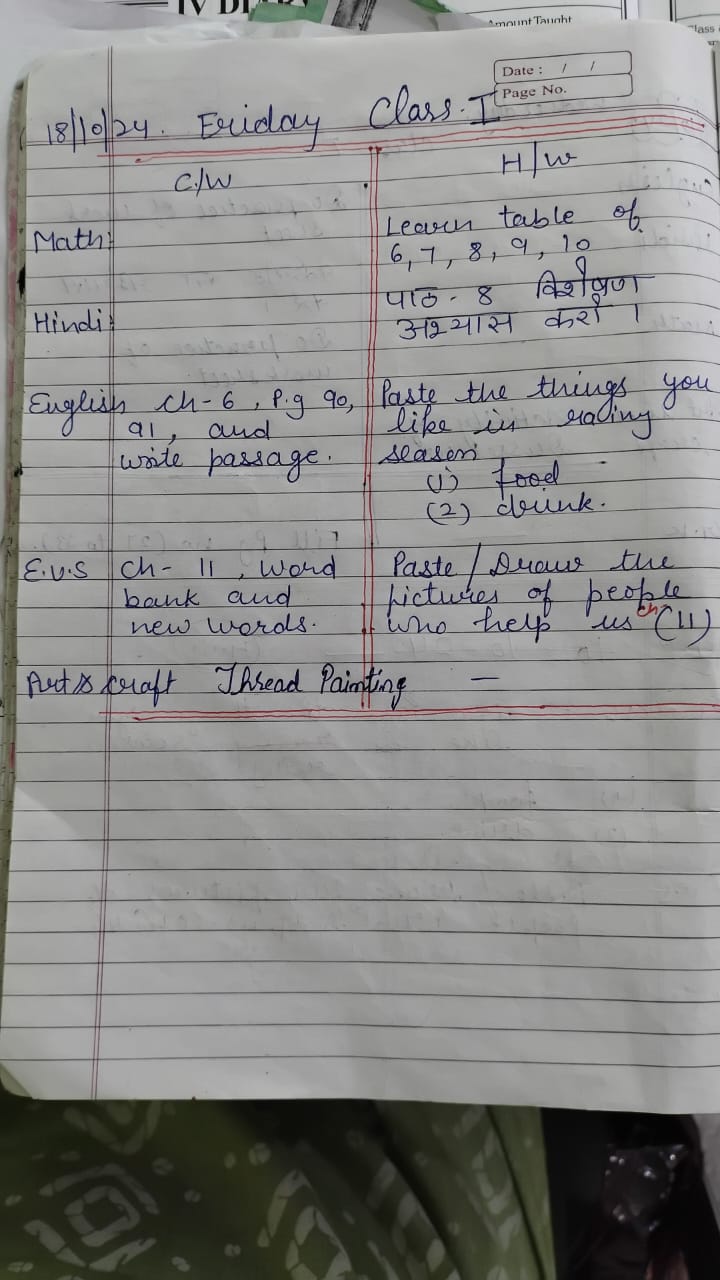 IV DIARY
Amount Taught
Date : / /
Page No.
18/10/24. Friday Class - I
C/W H/W
Math: Learn table of
6, 7, 8, 9, 10
Hindi: पाठ - 8 विशेषण
अभ्यास करो ।
English ch - 6 , P.g 90, Paste the things you
91 , and like in rainy
write passage. season
(1) food
(2) drink.
E.V.S Ch - 11 , word Paste / Draw the
bank and pictures of people
new words. who help us ch (11)
Art & craft Thread Painting —